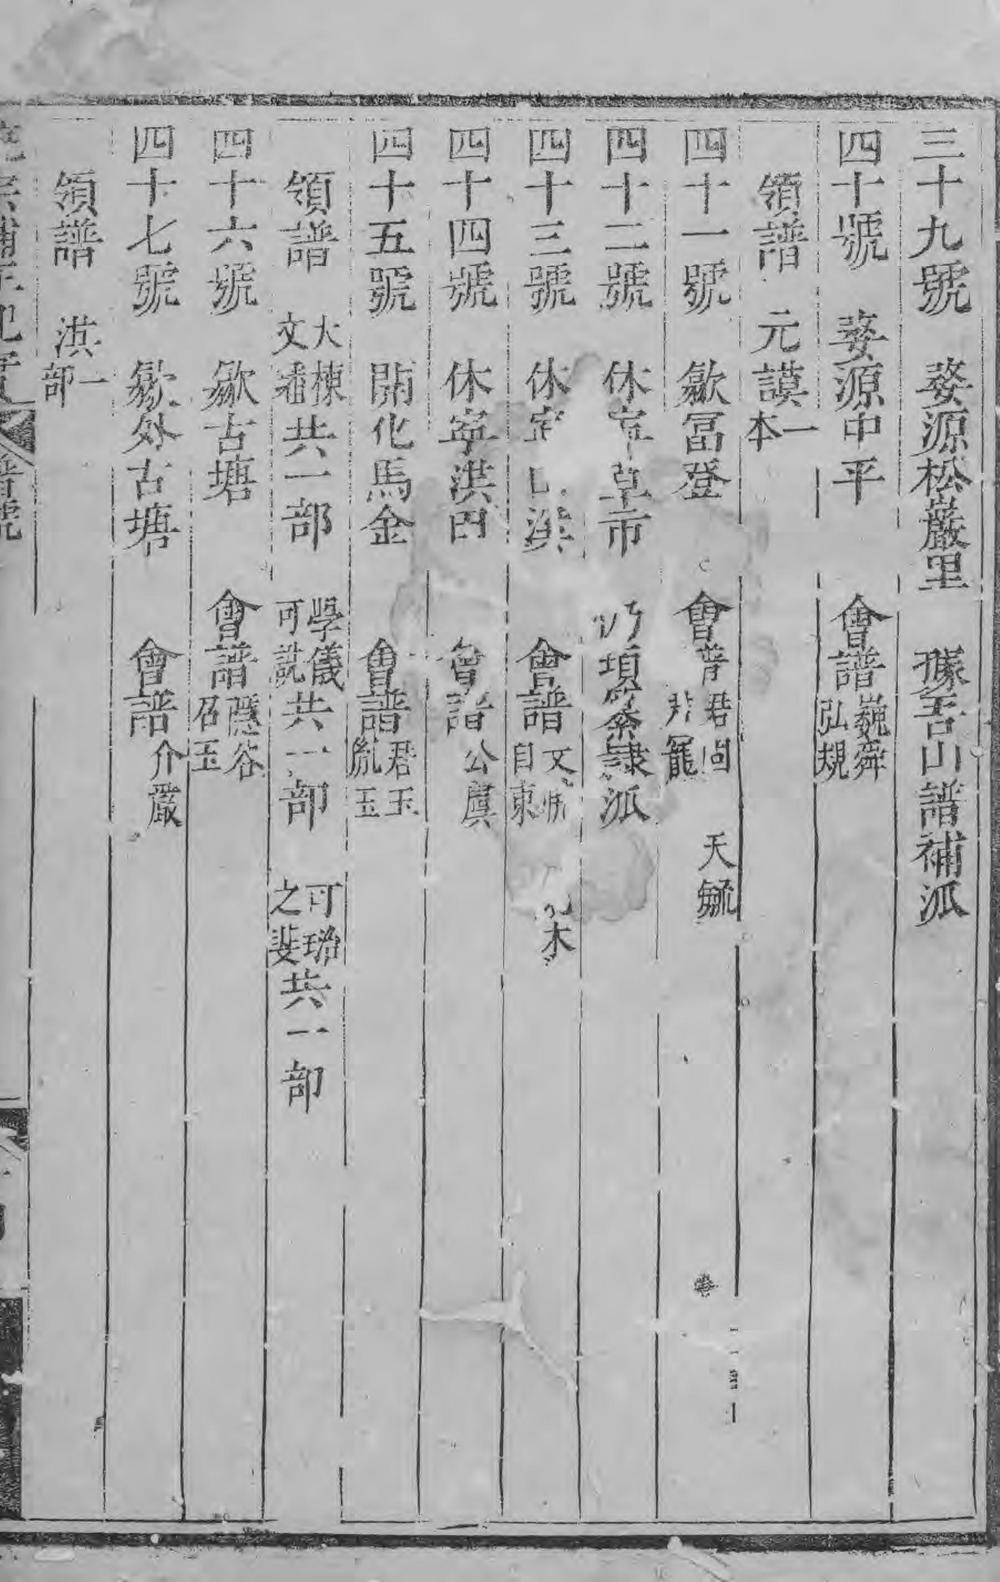 三十九號　婺源松巖里　據吾山譜補派
四十號　婺源中平　會譜巍舜弘規
領譜　元謨一本
四十一號　歙冨登　會譜君　寵　天毓
四十二號　休寧草市　項槃隷派
四十三號　休　溪　會譜文　自東　木
四十四號　休寧洪田　會譜公虞
四十五號　開化馬金　會譜君玉胤玉
領譜　大棟文　共一部　學儀可説共一部　可瑠之斐共一部
四十六號　歙古塘　會譜隱谷召玉
四十七號　歙外古塘　會譜介嚴
領譜　淇一部
譜號